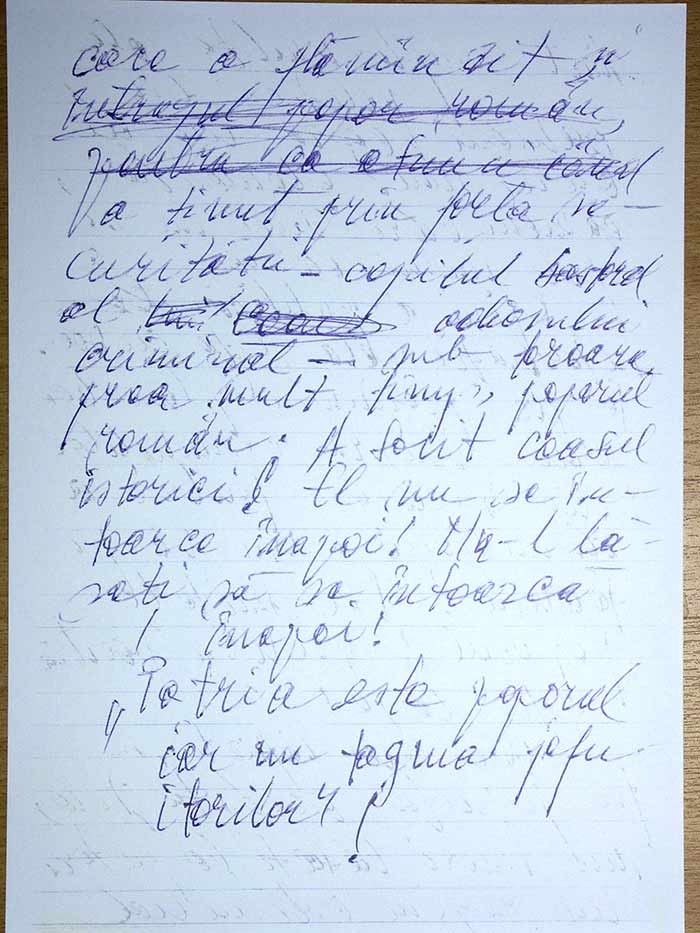 care a flămînzit și
întregul popor român,
pentru că atunci cînd
a ținut prin forța se-
curității – copilul bastard
al odiosului
criminal – sub teroare
prea mult timp, poporul
român. A sosit ceasul
istoriei! El nu se în-
toarce înapoi! Nu-l lă-
sați să se întoarcă
înapoi!
„Patria este poporul
iar nu tagma jefu-
itorilor"!